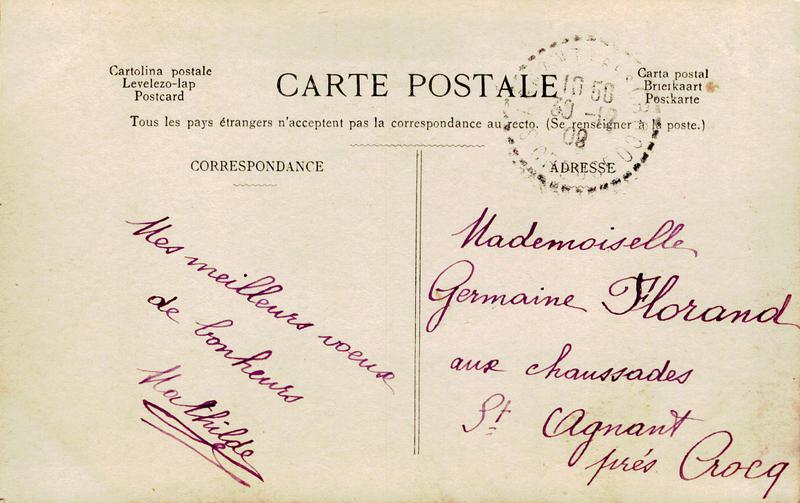 Cartolina postale
Levelezo-lap
Postcard
CARTE POSTALE
Carta postal
Brierkaart
Postkarte
Tous les pays étrangers n'acceptent pas la correspondance au recto. (Se renseigner à la poste.)
CORRESPONDANCE
ADRESSE
10 50
30 -12
09
CREUSE
Mes meilleurs voeux
de bonheurs
Mathilde
Mademoiselle
Germaine Florand
aux chaussades
St Agnant
prés Crocq